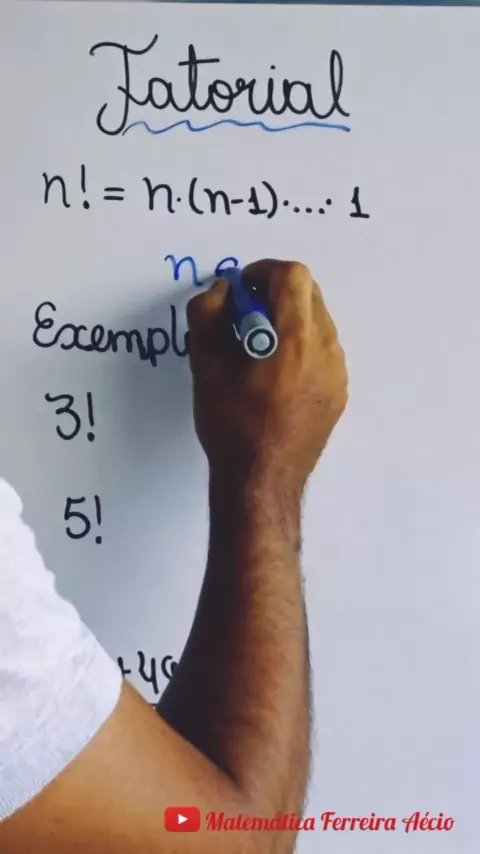 Fatorial
n! = n·(n-1)·...· 1
n
3!
5!
Matemática Ferreira Aécio